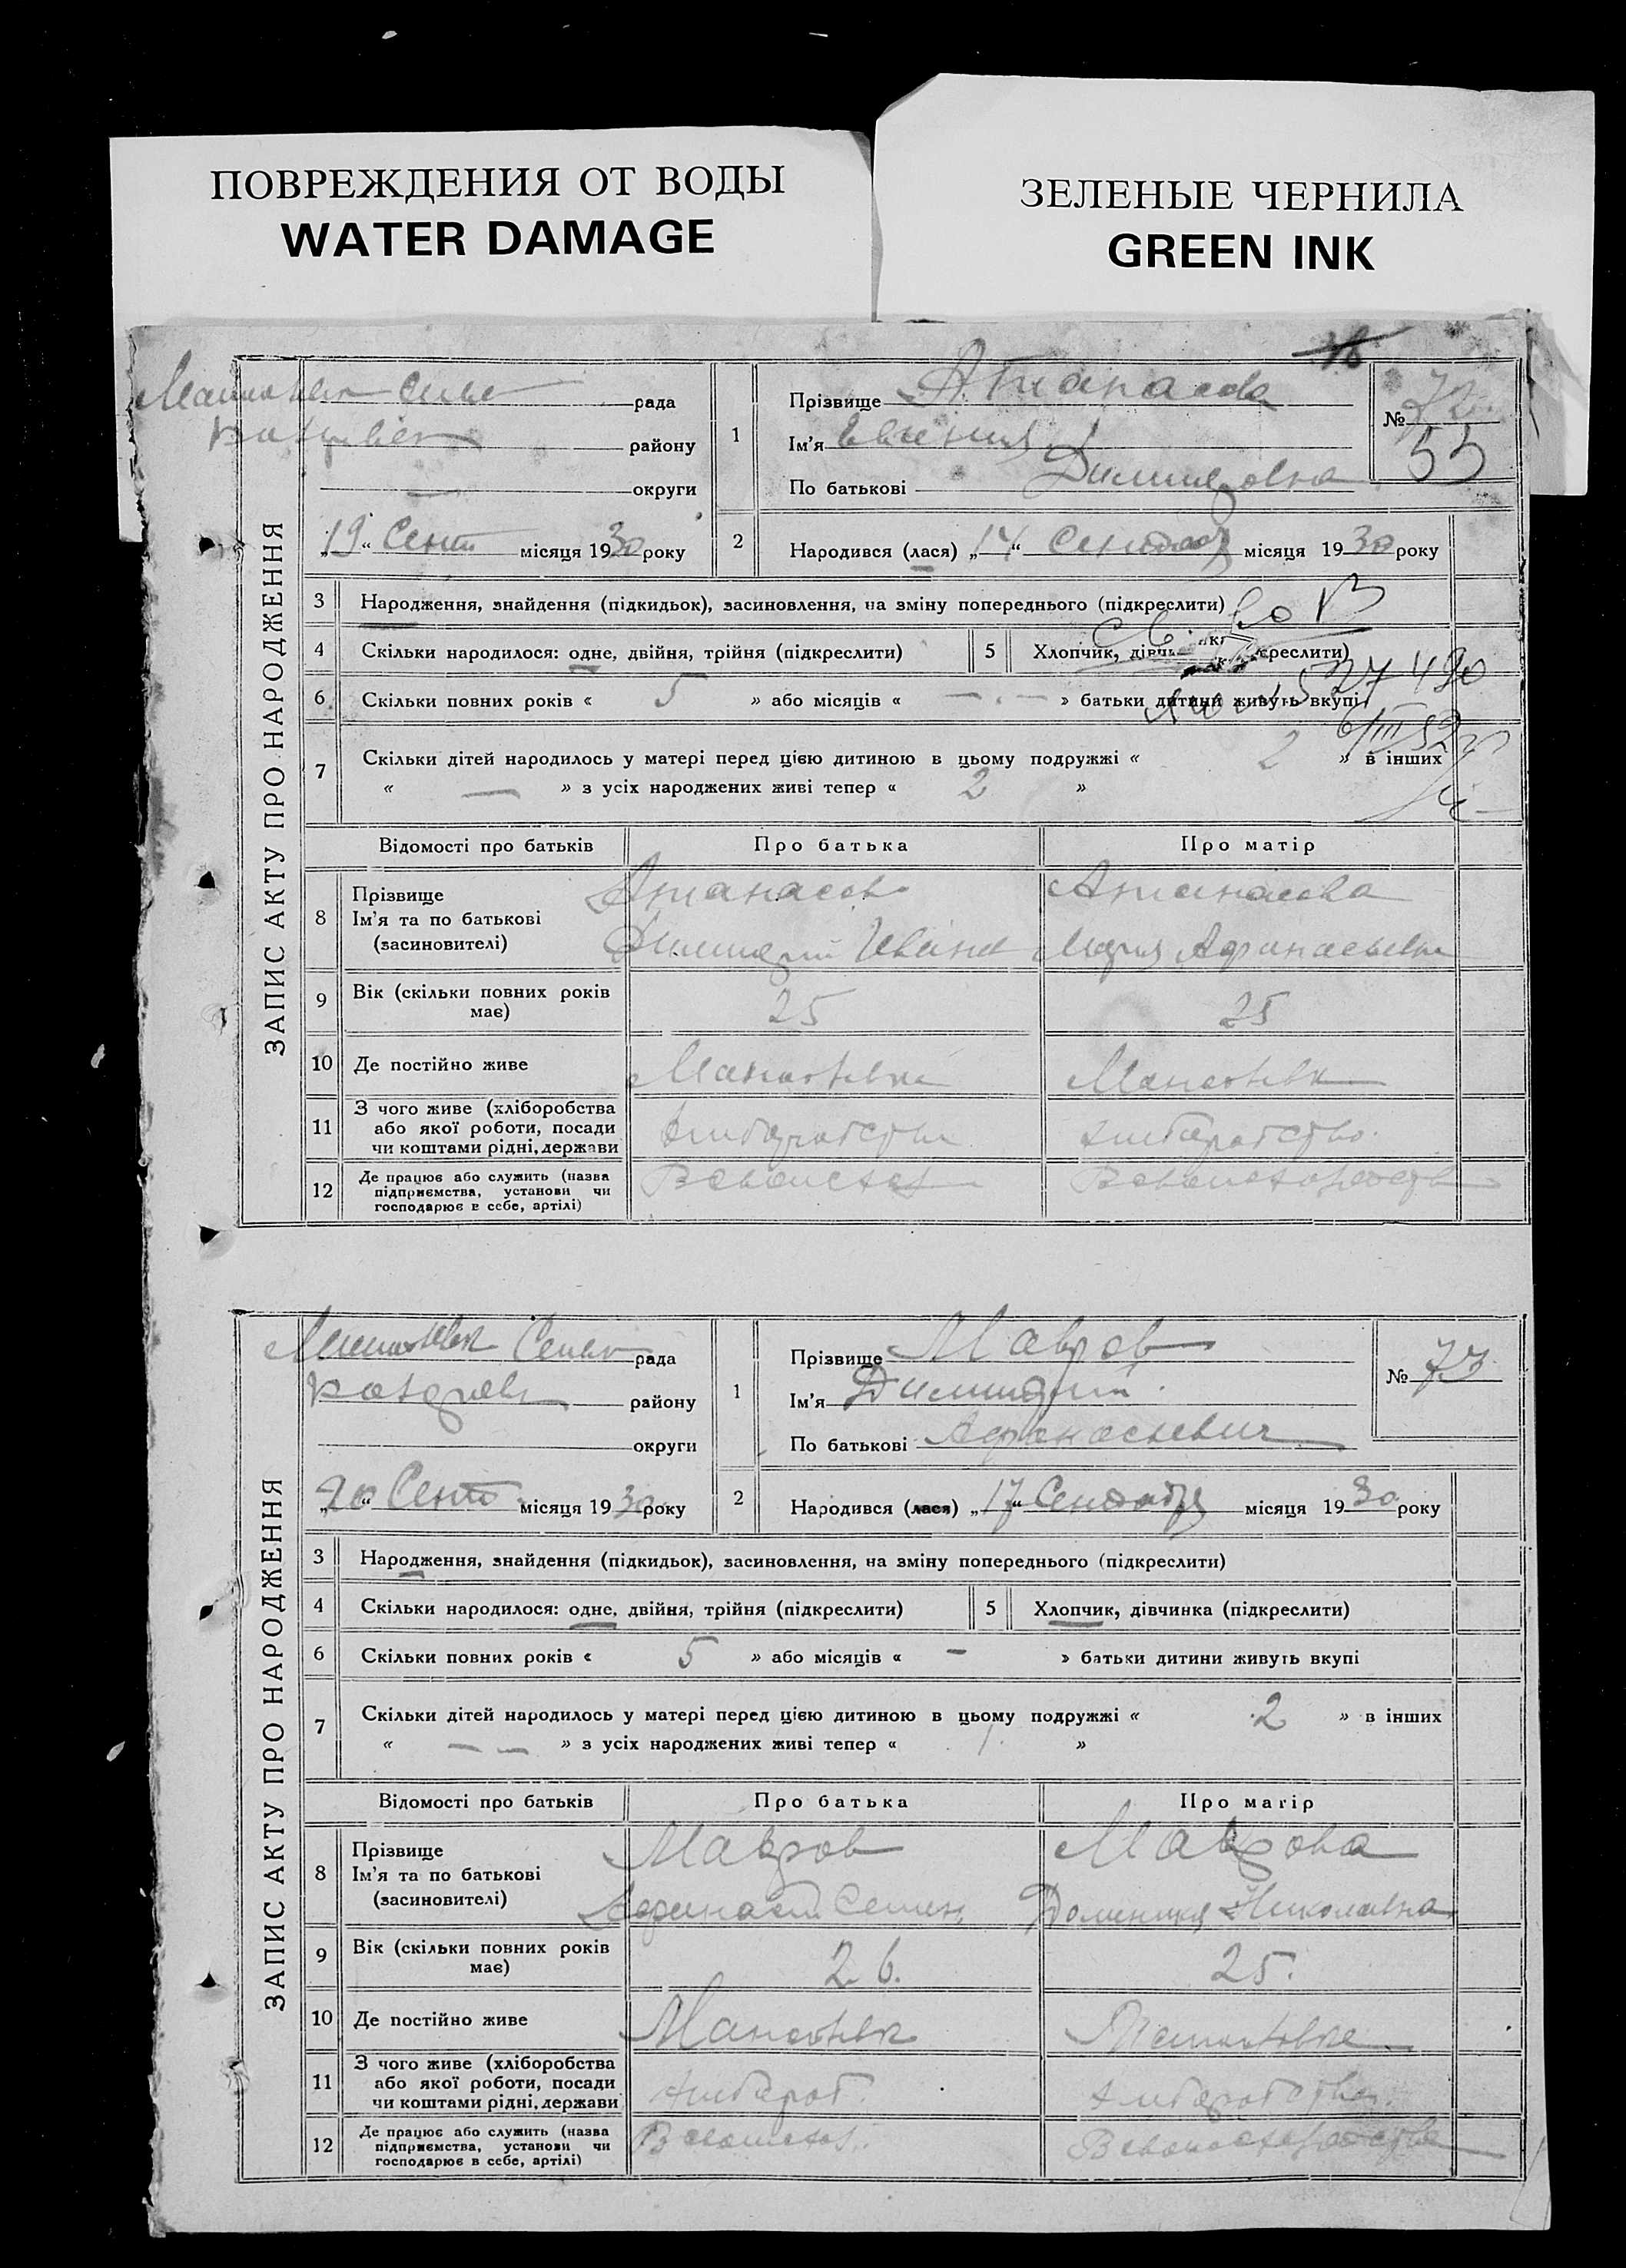 ПОВРЕЖДЕНИЯ ОТ ВОДЫ
WATER DAMAGE
ЗЕЛЕНЫЕ ЧЕРНИЛА
GREEN INK
ЗАПИС АКТУ ПРО НАРОДЖЕННЯ
рада
району
округи
„19“ Сент місяця 1930 року
1
Прізвище Атанасова
Ім'я Евгения
По батькові Димитровна
№ 72
55
2
Народився (лася) „14“ Сентября місяця 1930 року
3 Народження, знайдення (підкидьок), засиновлення, на зміну попереднього (підкреслити)
4 Скільки народилося: одне, двійня, трійня (підкреслити)
5 Хлопчик,
6 Скільки повних років « 5 » або місяців « — » батьки дитини живуть вкупі
6/III 52 г
7 Скільки дітей народилось у матері перед цією дитиною в цьому подружжі « 2 » в інших
« — » з усіх народжених живі тепер « 2 »
Відомості про батьків Про батька Про матір
8 Прізвище
Ім'я та по батькові
(засиновителі)
Атанасов
Димитрий Иванов
Атанасова
Мария Афанасьевна
9 Вік (скільки повних років має) 25 25
10 Де постійно живе
11 З чого живе (хліборобства
або якої роботи, посади
чи коштами рідні, держави
12 Де працює або служить (назва
підприємства, установи чи
господарює в себе, артілі)
ЗАПИС АКТУ ПРО НАРОДЖЕННЯ
рада
району
округи
„20“ Сент місяця 1930 року
1
Прізвище Мавров
Ім'я Димитрий
По батькові Афанасьевич
№ 73
2
Народився (лася) „17“ Сентября місяця 1930 року
3 Народження, знайдення (підкидьок), засиновлення, на зміну попереднього (підкреслити)
4 Скільки народилося: одне, двійня, трійня (підкреслити)
5 Хлопчик, дівчинка (підкреслити)
6 Скільки повних років « 5 » або місяців « — » батьки дитини живуть вкупі
7 Скільки дітей народилось у матері перед цією дитиною в цьому подружжі « 2 » в інших
« — » з усіх народжених живі тепер « 1 »
Відомості про батьків Про батька Про матір
8 Прізвище
Ім'я та по батькові
(засиновителі)
Мавров
Афанасий Семен.
Маврова
Доменика Николавна
9 Вік (скільки повних років має) 26. 25.
10 Де постійно живе
11 З чого живе (хліборобства
або якої роботи, посади
чи коштами рідні, держави
12 Де працює або служить (назва
підприємства, установи чи
господарює в себе, артілі)